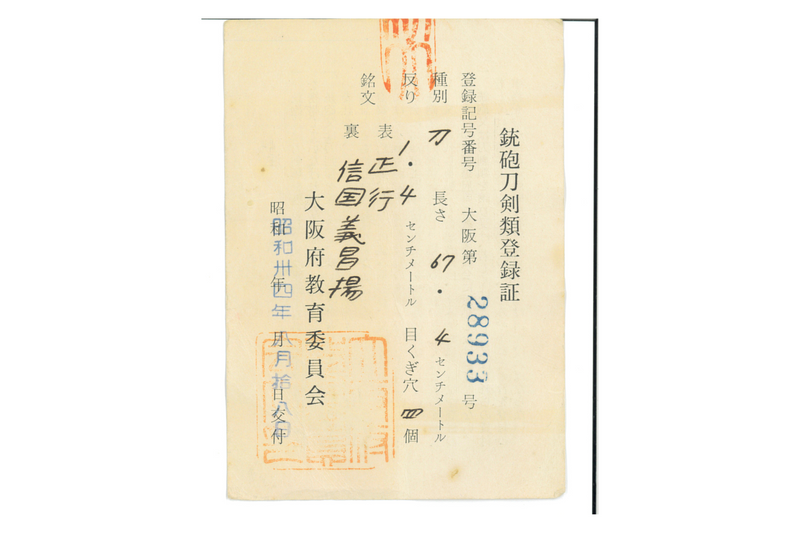 銃砲刀剣類登録証
登録記号番号 大阪第 28933 号
種別 刀 長さ 67.4 センチメートル
反り 1.4 センチメートル 目くぎ穴 四 個
銘文 表 正行
裏 信国義昌揚
大阪府教育委員会
昭和 年 月 日交付
昭和卅四年八月拾八日